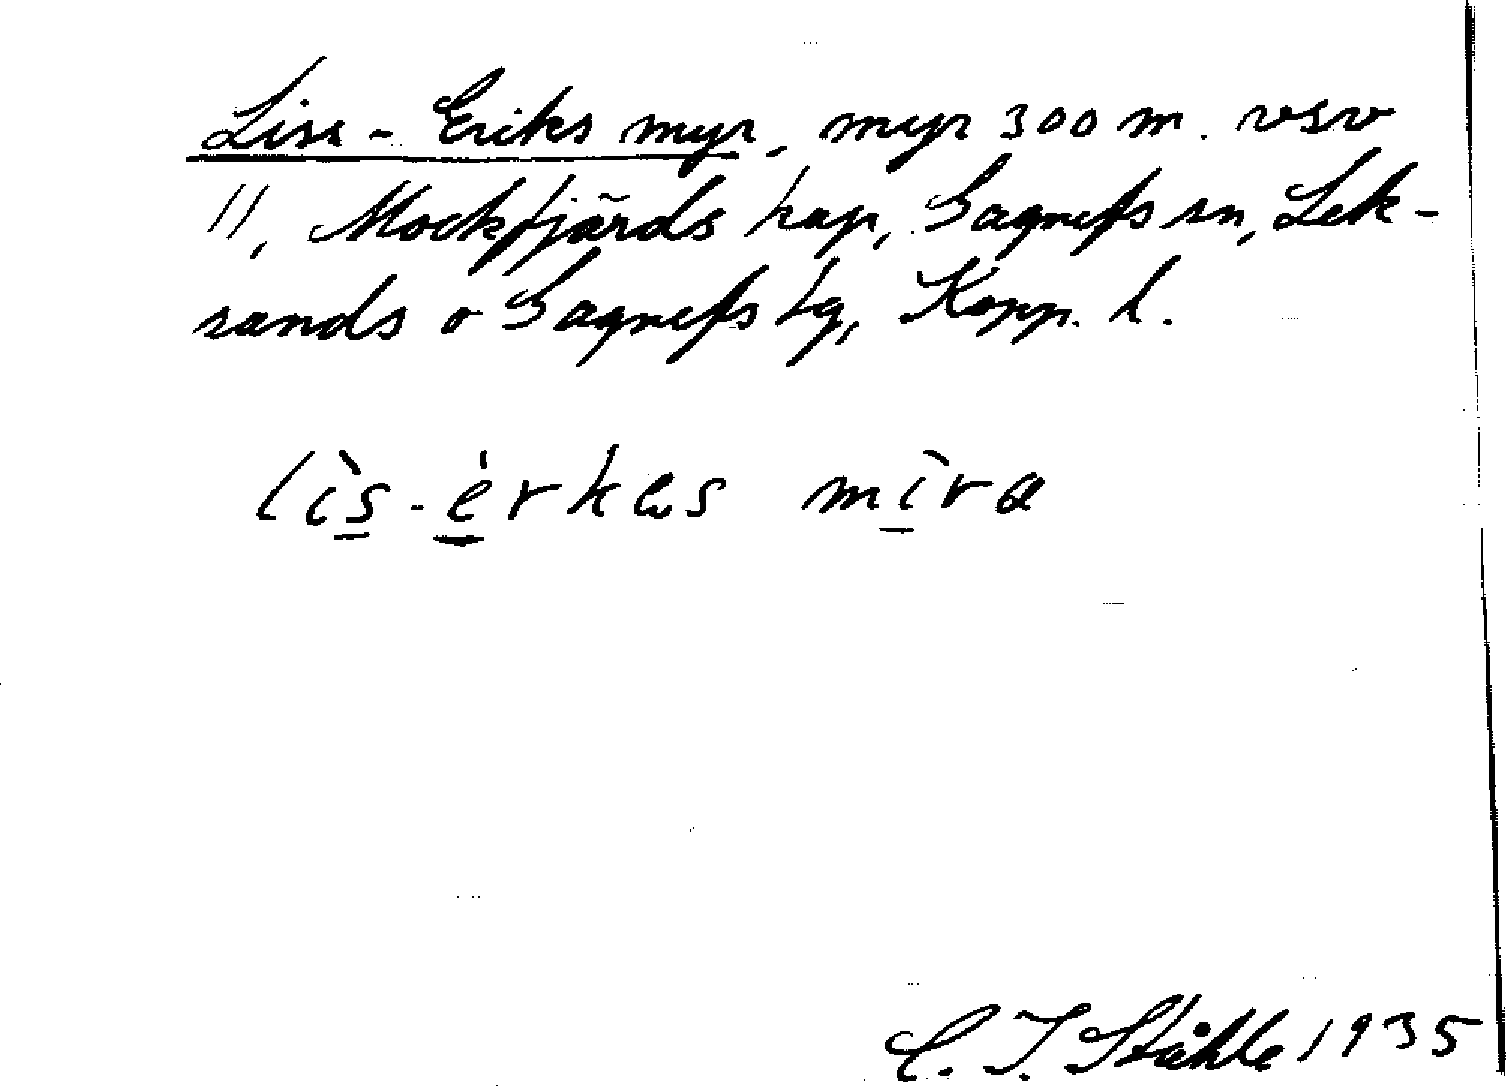 Liss-Eriks myr, myr 300 m. vsv
11, Mockfjärds kap, Gagnefs sn, Lek-
sands o Gagnefs tg, Kopp. l.
lìs-èrkəs mìra
C. I. Ståhle 1935